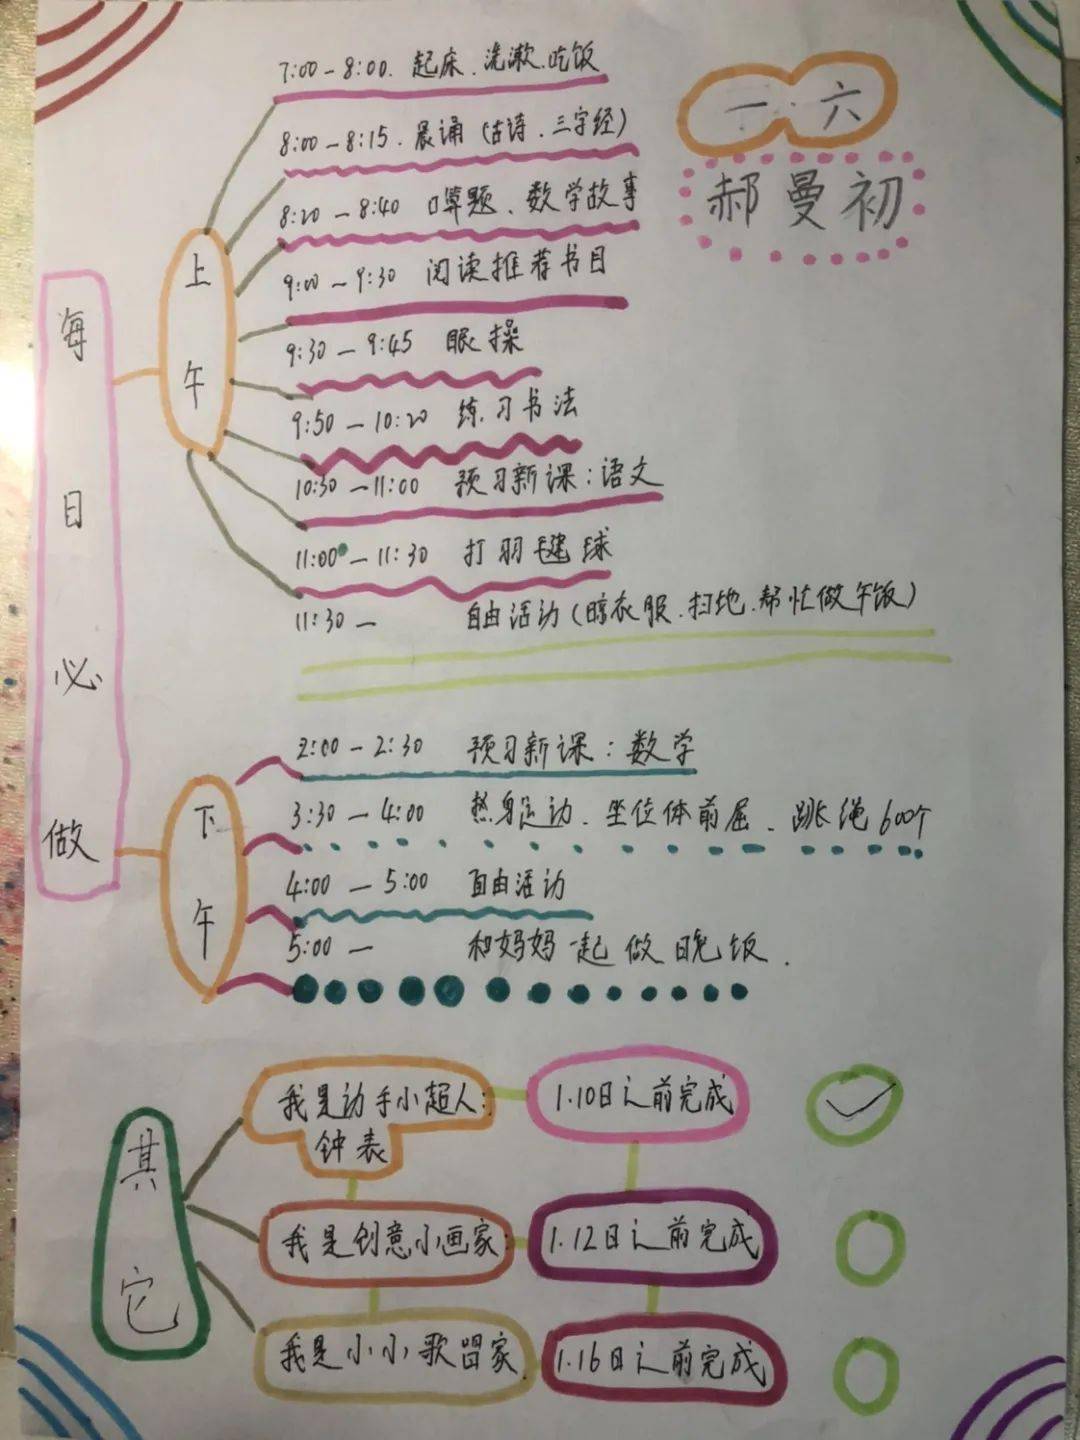 一.六
郝曼初
每日必做
上午
7:00-8:00. 起床.洗漱.吃饭
8:00-8:15. 晨诵(古诗.三字经)
8:20-8:40 口算题、数学故事
9:00-9:30 阅读推荐书目
9:30-9:45 眼操
9:50-10:20 练习书法
10:30-11:00 预习新课:语文
11:00-11:30 打羽毽球
11:30- 自由活动(晾衣服.扫地.帮忙做午饭)
下午
2:00-2:30 预习新课:数学
3:30-4:00 热身运动、坐位体前屈、跳绳600个
4:00-5:00 自由活动
5:00- 和妈妈一起做晚饭.
其它
我是动手小超人:
钟表
1.10日之前完成
我是创意小画家:
1.12日之前完成
我是小小歌唱家
1.16日之前完成